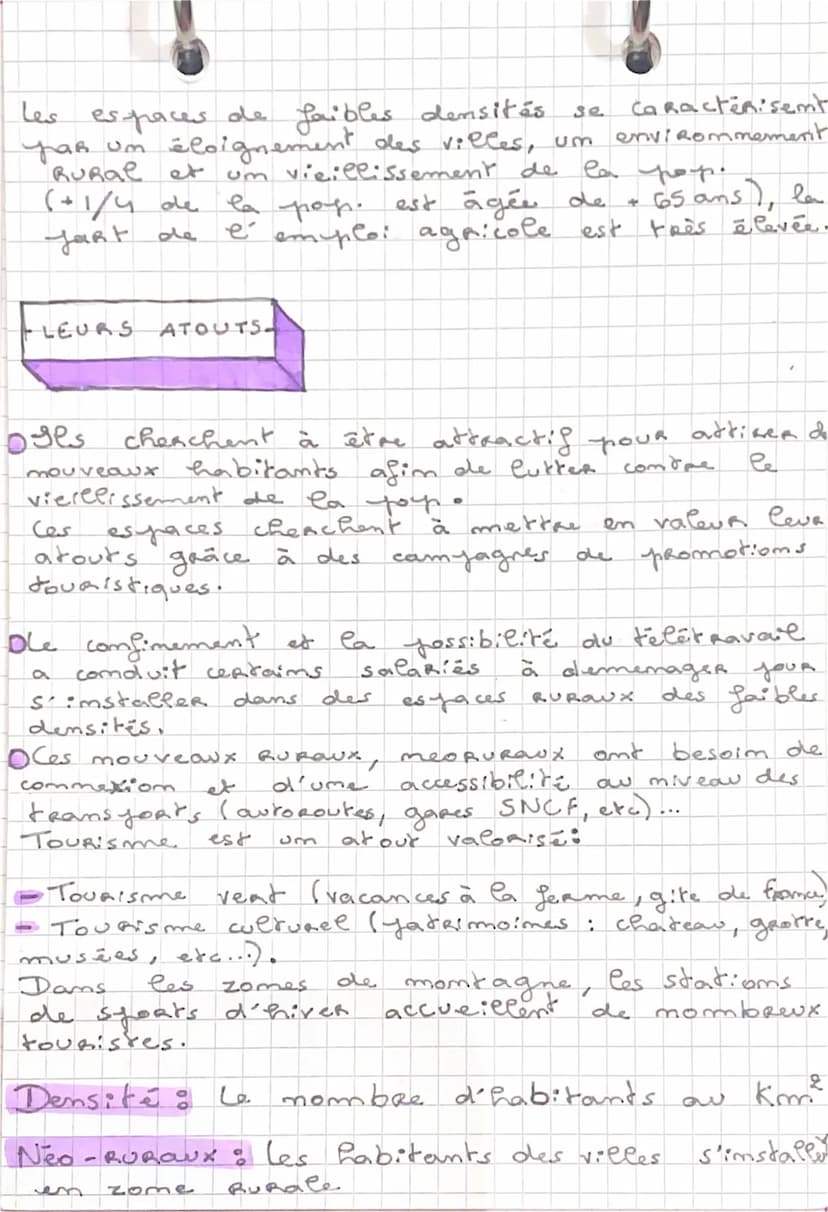 Les espaces de faibles densités se caractérisent
par un éloignement des villes, un environnement
rural et un vieillissement de la pop.
(+ 1/4 de la pop. est âgée de + 65 ans), la
part de l'emploi agricole est très élevée.
LEURS ATOUTS
Ils cherchent à être attractif pour attirer d
nouveaux habitants afin de lutter contre le
vieillissement de la pop.
Ces espaces cherchent à mettre en valeur leur
atouts grâce à des campagnes de promotions
touristiques.
Le confinement et la possibilité du télétravail
a conduit certains salariés à demenager pour
s'installer dans des espaces ruraux des faibles
densités.
Ces nouveaux ruraux, neoruraux ont besoin de
connexion et d'une accessibilité au niveau des
transports (autoroutes, gares SNCF, etc)...
Tourisme est un atout valorisé :
- Tourisme vert (vacances à la ferme, gite de france)
- Tourisme culturel (patrimoines : chateau, grotte,
musées, etc...).
Dans les zones de montagne, les stations
de sports d'hiver accueillent de nombreux
touristes.
Densité : Le nombre d'habitants au Km²
Néo-ruraux : Les habitants des villes s'install
en zone rurale